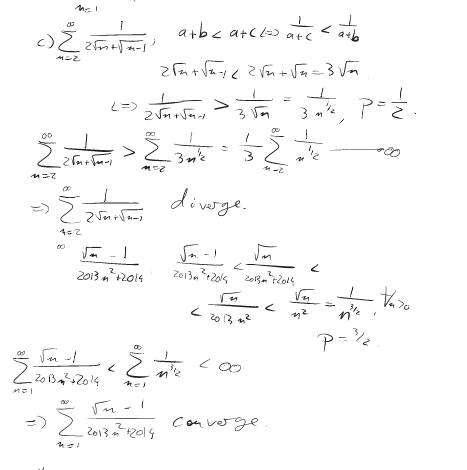 n=1
c) ∑_{n=2}^{∞} 1/(2√n+√n-1), a+b < a+c <=> 1/(a+c) < 1/(a+b)
2√n+√n-1 < 2√n+√n = 3√n
<=> 1/(2√n+√n-1) > 1/(3√n) = 1/(3n^{1/2}), p = 1/2.
∑_{n=2}^{∞} 1/(2√n+√n-1) > ∑_{n=2}^{∞} 1/(3n^{1/2}) = 1/3 ∑_{n=2}^{∞} 1/n^{1/2} → ∞
=> ∑_{n=2}^{∞} 1/(2√n+√n-1) diverge.
∞ (√n-1)/(2013n²+2014) (√n-1)/(2013n²+2014) < √n/(2013n²+2014) <
< √n/(2013n²) < √n/n² = 1/n^{3/2}, ∀n>0
p = 3/2.
∑_{n=1}^{∞} (√n-1)/(2013n²+2014) < ∑_{n=1}^{∞} 1/n^{3/2} < ∞
=> ∑_{n=1}^{∞} (√n-1)/(2013n²+2014) converge.